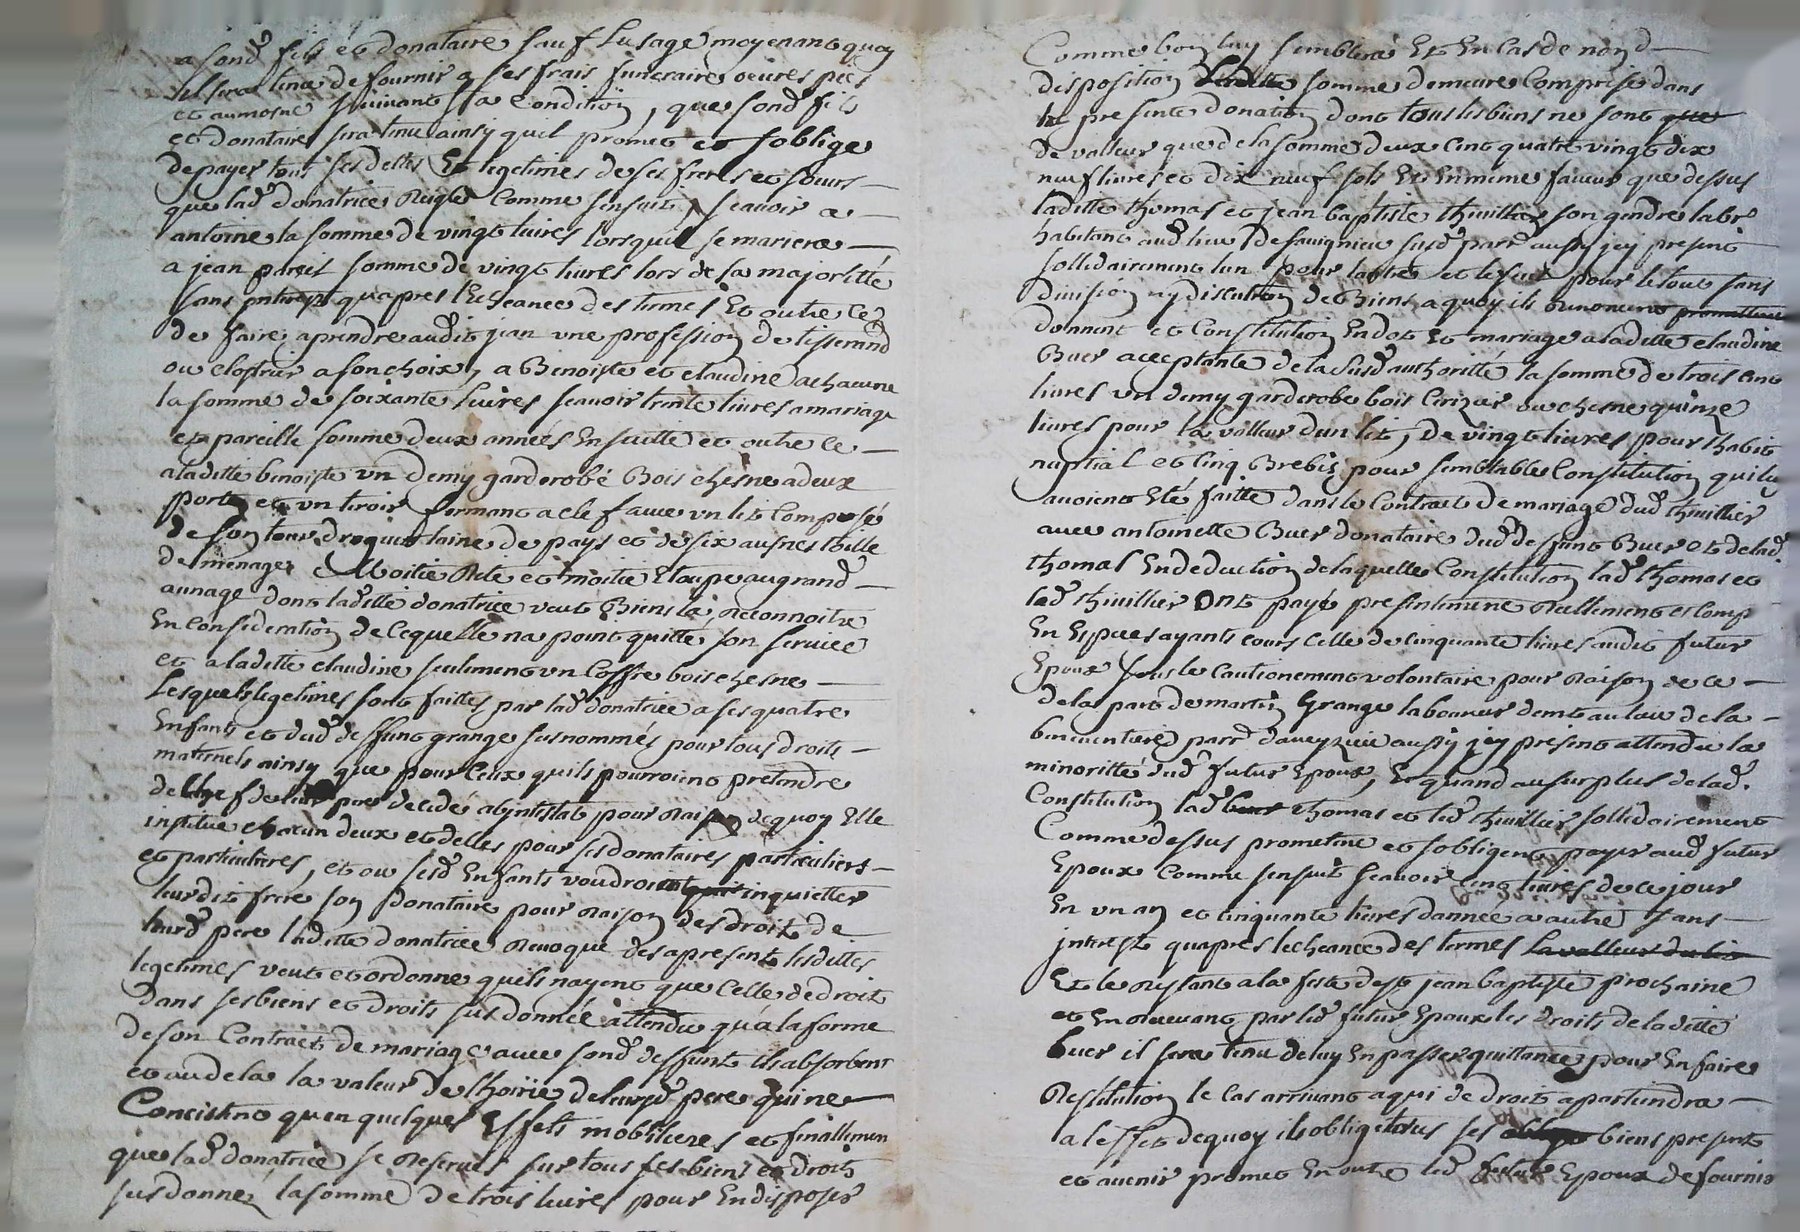 a sond fils et donataire sauf lusage moyenant quoy
il sera tenu de fournir a ses frais funeraires oeuvres pies
et aumosne suivant sa condition, que sond fils
et donataire sera tenu ainsy quil promet et soblige
de payer tous ses dettes Et legetimes de ses freres et soeurs
que lad donatrice Reigle Comme sensuit, scavoir a
antoine la somme de vingt livres lorsquil se mariera
a jean pareil somme de vingt livres lors de sa majoritté
sans interez qu apres lEcheance des termes Et outre ce
de faire aprendre audit jean une profession de tisserand
ou closfrier a son choix, a Benoiste et claudine a chacune
la somme de soixante livres scavoir trente livres a mariage
et pareille somme deux années En suitte et outre ce
a laditte benoiste un demy garderobe Bois chesne a deux
portes et un tiroir fermant a clé fauve un lit Composé
de son tour droguet laine de pays et de six ausnes thoille
de menage, Moitié Rite et moitié Etoupe au grand
aunage dont laditte donatrice veut Bien la Reconnoitre
En consideration de ce quelle na point quitté son service
et a laditte claudine seulement un Coffre bois chesne
lesquels legetimes sont faittes par lad donatrice a ses quatre
Enfants et dud deffunt grange susnommés pour tous droits
maternels ainsy que pour Ceux quils pourroient pretendre
de chef de leur pere decedé abintestat pour Raison de quoy Elle
institue chacun deux et delles pour ses donataires particuliers
et particulieres, et ou sesd Enfants voudroient inquietter
leurdit frere son Donataire pour Raison des droit de
leurd pere laditte donatrice Revoque des apresent lesdittes
legetimes veut et ordonne quils nayent que Celle de droit
dans ses biens et droits sus donnée attendu qua la forme
de son Contract de mariage avec sond deffunt ils absorbent
et au dela la valeur de lhoirie de leurd pere qui ne
Concistent qu en quelques Effets mobiliers et finallement
que lad donatrice se Reserve sur tous ses biens et droits
sus donnez la somme de trois livres pour En disposer
Comme bon luy semblera Et En Cas de non
disposition laditte somme demeure Comprise dans
la presente donation dont tous les biens ne sont que
de valleur que de la somme deux Cent quatre vingt dix
neuf livres et dix neuf sols Et En meme faveur que dessus
laditte thomas et jean baptiste thuillier son gendre labr
habitant aud lieu de savignieu susd parr aussy jcy present
sollidairement lun pour lautre et le seul pour le tout sans
division ny discution de biens a quoy ils Renoncent promettent
donnent et Constitution En dot Et mariage a laditte claudine
Buer acceptante de la susd authoritté la somme de trois Cent
livres un demy garderobe bois Cerizier ou chesne quinze
livres pour la valleur dun lit, de vingt livres pour lhabit
nuptial et Cinq Brebis pour semblable Constitution qui luy
avoient Eté faitte dans le Contract de mariage dud thuillier
avec antoinette Buer donataire dud deffunt Buer et de lad
thomas En deduction de laquelle Constitution lad thomas et
led thuillier ont payé presentement Reellement et Comp
En Especes ayants cours Celle de cinquante livres audit futur
Epoux sous le Cautionement volontaire pour Raison de ce
de la part de martin Grange laboureur demt au lieu de la
parr daveyzieu aussy jcy present attendu la
minoritté dud futur Epoux, Et quand au surplus de lad
Constitution lad thomas et led thuillier sollidairement
Comme dessus promettent et sobligent payer aud futur
Epoux Comme sensuit scavoir cent livres de ce jour
En un an et cinquante livres dannée a autre sans
jnterest quapres lecheance des termes la valleur du lit
Et le Restant a la feste de st jean baptiste prochaine
et En Recevant par led futur Epoux les droits de laditte
buer il sera tenu de luy En passer quittance pour En faire
Restitution le Cas arrivant a qui de droit apartiendra
a leffet de quoy ils obligent tous ses biens present
et avenir promet En outre led futur Epoux de fournir